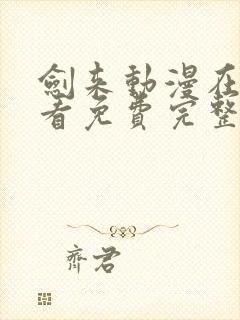 劍来動漫在
看免費完整
齊君